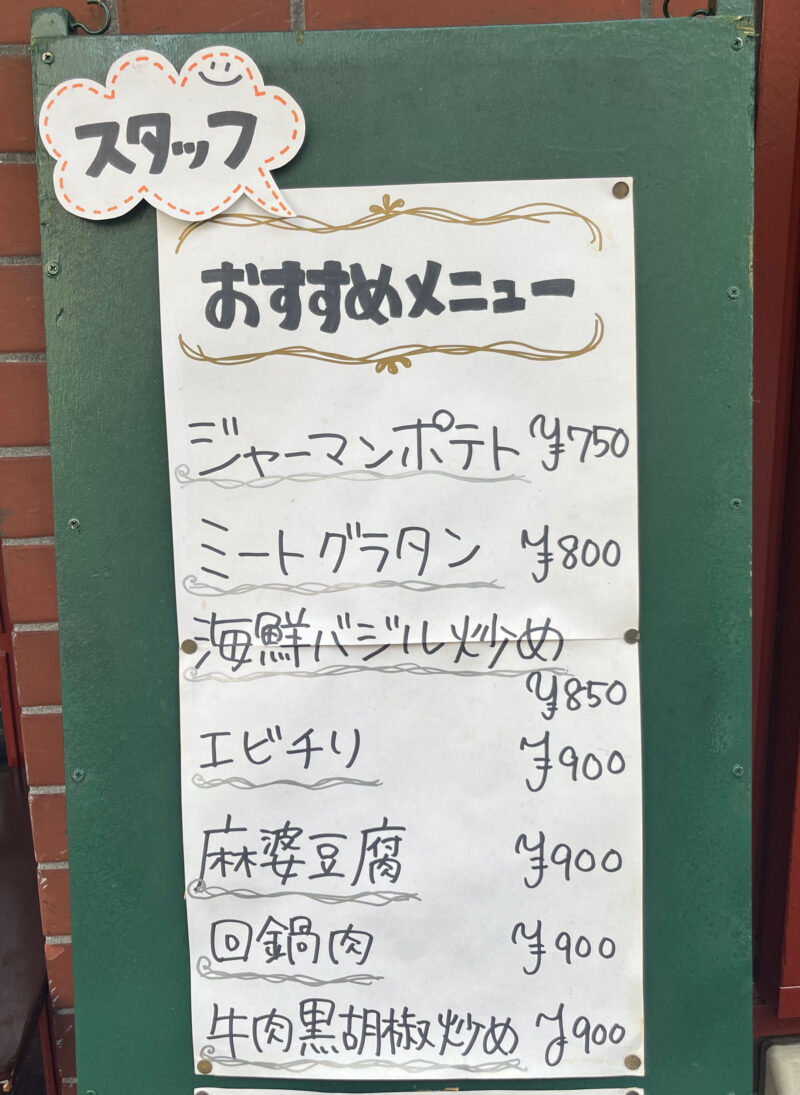 スタッフ
おすすめメニュー
ジャーマンポテト ¥750
ミートグラタン ¥800
海鮮バジル炒め
¥850
エビチリ ¥900
麻婆豆腐 ¥900
回鍋肉 ¥900
牛肉黒胡椒炒め ¥900